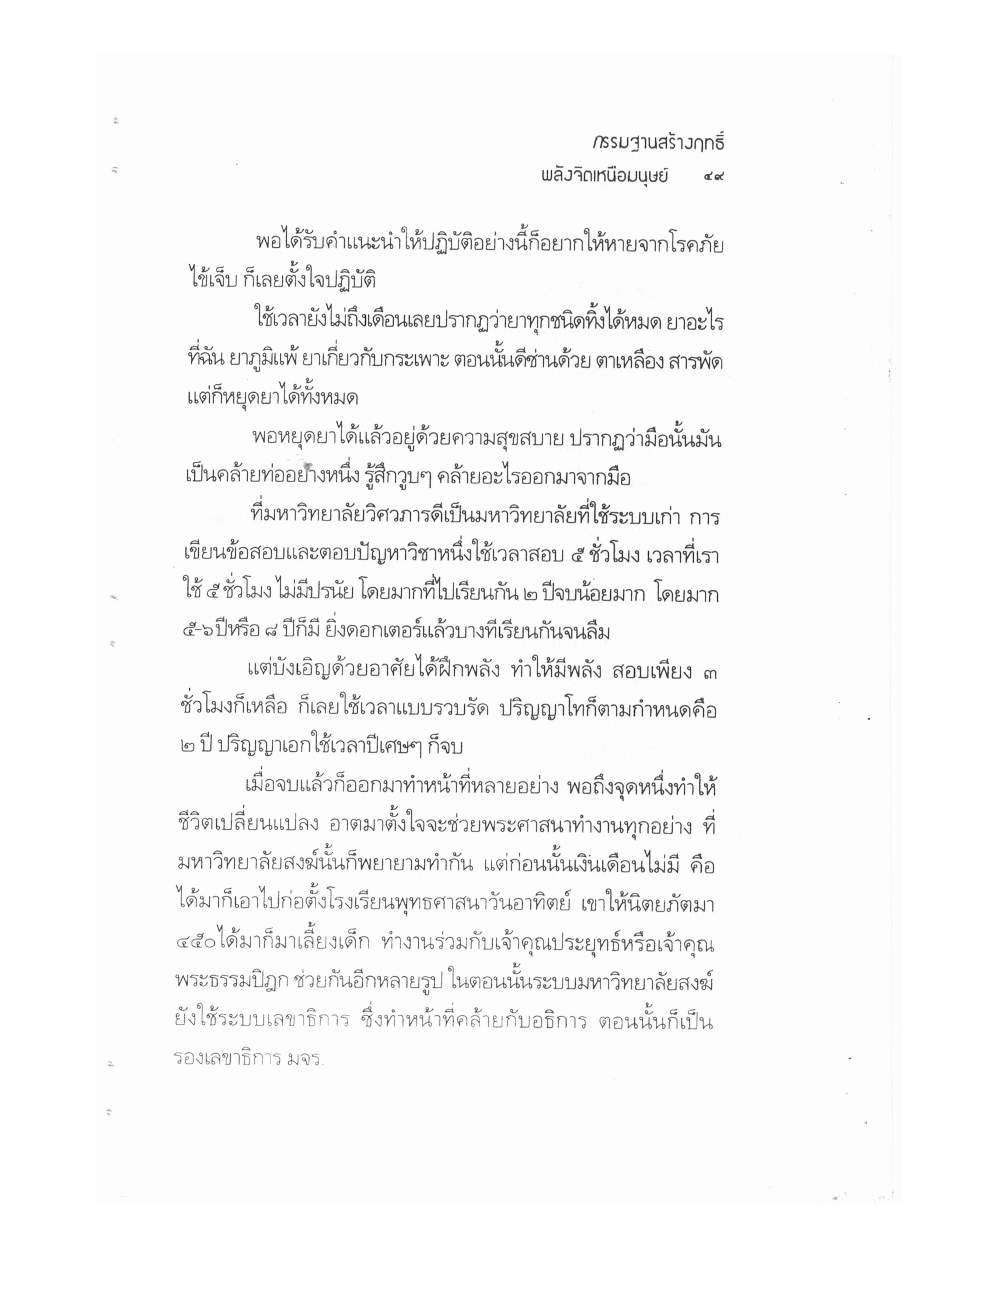 กรรมฐานสร้างฤทธิ์
พลังจิตเหนือมนุษย์ ๔๙
พอได้รับคำแนะนำให้ปฏิบัติอย่างนี้ก็อยากให้หายจากโรคภัย
ไข้เจ็บ ก็เลยตั้งใจปฏิบัติ
ใช้เวลายังไม่ถึงเดือนเลยปรากฏว่ายาทุกชนิดทิ้งได้หมด ยาอะไร
ที่ฉัน ยาภูมิแพ้ ยาเกี่ยวกับกระเพาะ ตอนนั้นดีซ่านด้วย ตาเหลือง สารพัด
แต่ก็หยุดยาได้ทั้งหมด
พอหยุดยาได้แล้วอยู่ด้วยความสุขสบาย ปรากฏว่ามือนั้นมัน
เป็นคล้ายท่ออย่างหนึ่ง รู้สึกวูบๆ คล้ายอะไรออกมาจากมือ
ที่มหาวิทยาลัยวิศวภารตีเป็นมหาวิทยาลัยที่ใช้ระบบเก่า การ
เขียนข้อสอบและตอบปัญหาวิชาหนึ่งใช้เวลาสอบ ๕ ชั่วโมง เวลาที่เรา
ใช้ ๕ ชั่วโมง ไม่มีปรนัย โดยมากที่ไปเรียนกัน ๒ ปีจบน้อยมาก โดยมาก
๕-๖ ปีหรือ ๘ ปีก็มี ยิ่งดอกเตอร์แล้วบางทีเรียนกันจนลืม
แต่บังเอิญด้วยอาศัยได้ฝึกพลัง ทำให้มีพลัง สอบเพียง ๓
ชั่วโมงก็เหลือ ก็เลยใช้เวลาแบบรวบรัด ปริญญาโทก็ตามกำหนดคือ
๒ ปี ปริญญาเอกใช้เวลาปีเศษๆ ก็จบ
เมื่อจบแล้วก็ออกมาทำหน้าที่หลายอย่าง พอถึงจุดหนึ่งทำให้
ชีวิตเปลี่ยนแปลง อาตมาตั้งใจจะช่วยพระศาสนาทำงานทุกอย่าง ที่
มหาวิทยาลัยสงฆ์นั้นก็พยายามทำกัน แต่ก่อนนั้นเงินเดือนไม่มี คือ
ได้มาก็เอาไปก่อตั้งโรงเรียนพุทธศาสนาวันอาทิตย์ เขาให้นิตยภัตมา
๔๕๐ ได้มาก็มาเลี้ยงเด็ก ทำงานร่วมกับเจ้าคุณประยุทธ์หรือเจ้าคุณ
พระธรรมปิฎก ช่วยกันอีกหลายรูป ในตอนนั้นระบบมหาวิทยาลัยสงฆ์
ยังใช้ระบบเลขาธิการ ซึ่งทำหน้าที่คล้ายกับอธิการ ตอนนั้นก็เป็น
รองเลขาธิการ มจร.